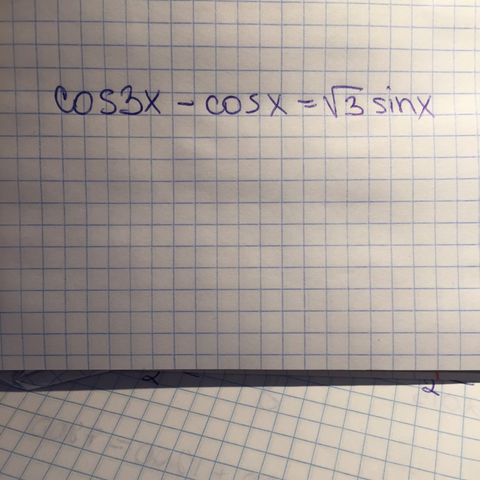 cos3x - cosx = √3 sinx
2
2